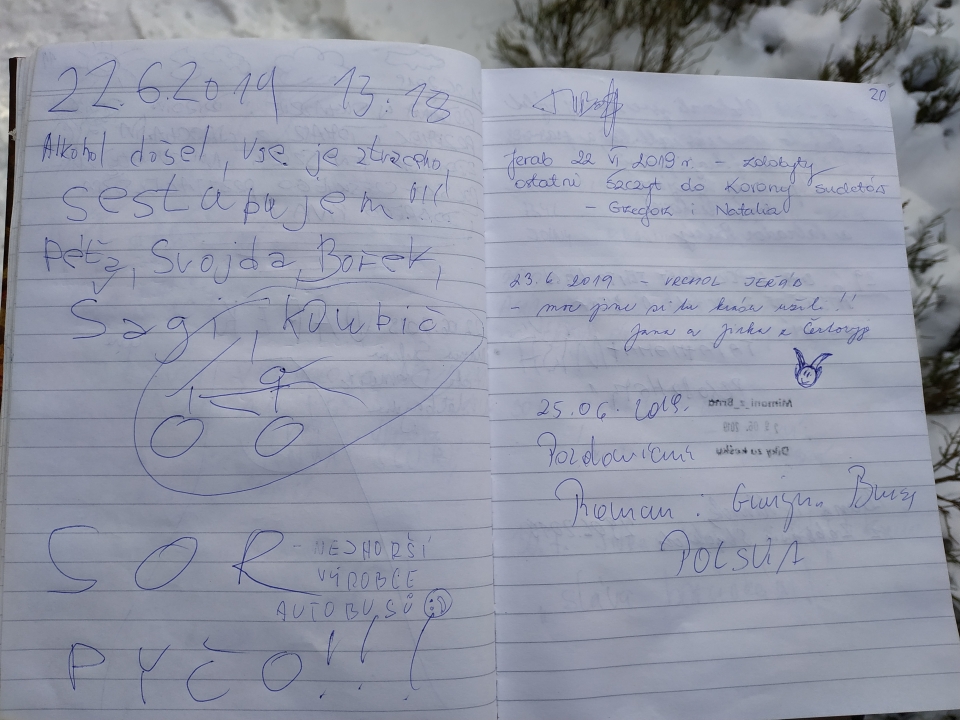 22.6.2019 13:18
Alkohol došel, vše je ztraceno,
sestupujem!!!
Péťa, Svojda, Bořek,
Sagi, Koubič
SOR - NEJHORŠÍ
VÝROBCE
AUTOBUSŮ
PYČO!!!
20
Jerab 22 VI 2019 r. - zdobyty
ostatni szczyt do Korony Sudetów
- Grzegorz i Natalia
23. 6. 2019 - VRCHOL JEŘÁB
- moc jsme si tu krásu užili!!
Jana a Jirka z
25.06.2019.
Mimoni_z_Brna
Díky za kešku
Pozdrowienia
Roman i
POLSKA